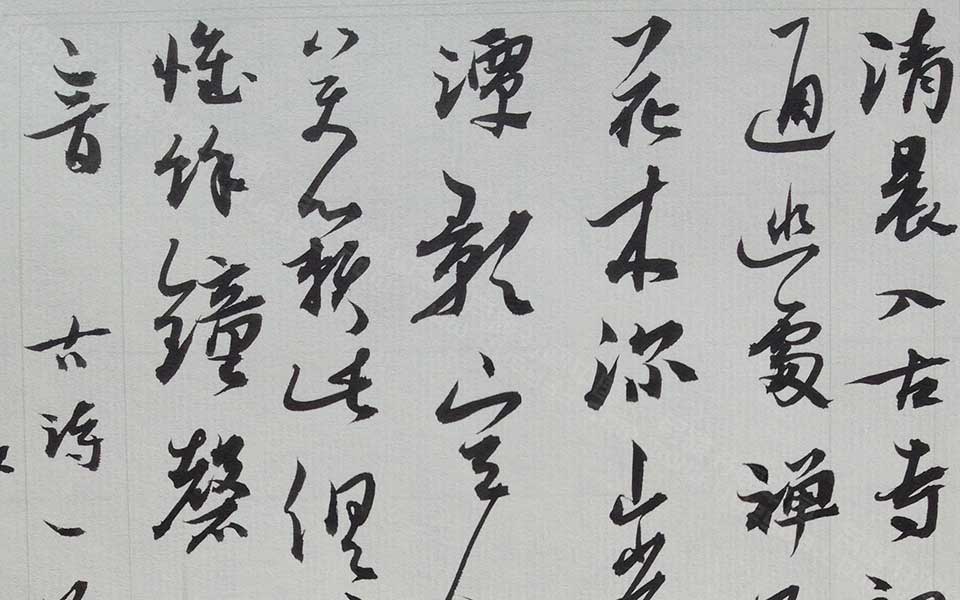 清晨入古寺
通幽處禪
花木深山光
潭影空
萬籟此俱
惟餘鐘磬
音 古詩一